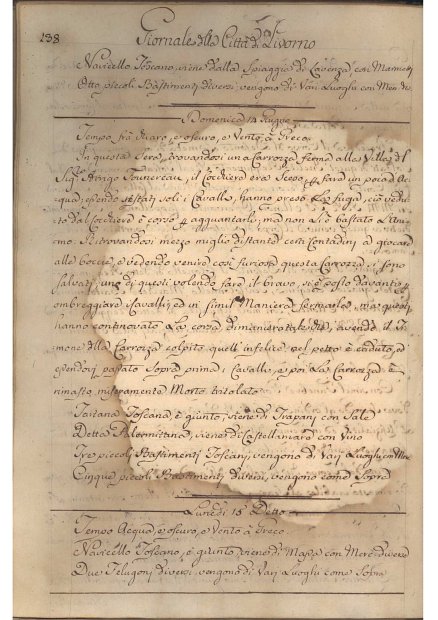 138
Giornale della Città di Livorno
Navicello Toscano, viene dalla Spiaggia di Lavenza, con Marmi
Otto piccoli Bastimenti diversi vengono di Vari Luoghi con Mer. di
Domenica 14 Giugno
Tempo frà chiaro, e oscuro, e Vento à Greco
In questa Sera, trovandosi una Carrozza ferma alle Ville del
Sigr. Arrigo il Cocchiere era Sceso per fare un poca d'Ac
qua, essendo restati soli i Cavalli, hanno preso la fuga, ciò vedu
to dal Cocchiere è corso per agguantarli, ma non Si è bastato l'Ani
mo. Ritrovandosi mezzo miglio distante certi Contadini a giocare
alle boccie, e vedendo venire così furiosa questa Carrozza, si sono
salvati, uno di questi volendo fare il bravo, si è posto davanti p
ombreggiare i Cavalli, ed in simil Maniera fermarli, ma questi
hanno continovato la corsa di mandiera tale che, avendo il Ti
mone della Carrozza colpito quell' infelice nel petto è caduto, ed
essendovi passato Sopra prima i Cavalli, e poi la Carrozza è
rimasto miseramente Morto
Tartana Toscana, è giunto, viene di Trapani con Sale
Detta Palermitana, viene di Castellamare con Vino
Tre piccoli Bastimenti Toscani, vengono di Vari Luoghi con
Cinque piccoli Bastimenti diversi, vengono come Sopra
Lunedì 15 Detto
Tempo Acqua, e oscuro, e Vento à Greco
Navicello Toscano, è giunto, viene di Massa con Merc. diverse
Due Feluconi diversi, vengono di Vari Luoghi come Sopra